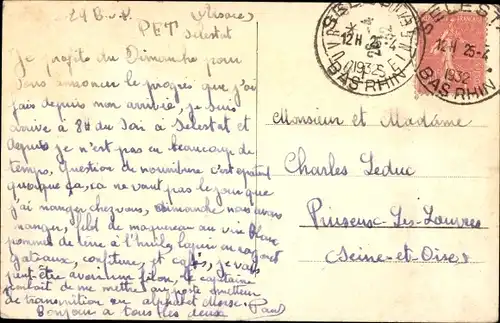 29 B
PET (Alsace)
Selestat
Je profite du Dimanche pour
vous annoncer le progrès que j'ai
fais depuis mon arrivée, je suis
arrivé à 8H du soir à Selestat et
depuis je n'est pas eu beaucoup de
temps, Question de nourriture c'est épatant
quoique ça, ca ne vaut pas le jour que
j'ai manger chez vous, dimanche nous avons
manger, filet de maquereau au vin blanc
pommes de terre à l'huile
Gateaux, confiture, et café, je vais
peut être avoir un filon, le capitaine
de me mettre au poste émetteur
de transmition ou alphabet Morse. Paul
Bonjour a tous les deux
SELESTAT
12H 25-4
1932
BAS RHIN
SELEST
12H 25-4
1932
BAS RHIN
Monsieur et Madame
Charles Leduc
Puiseux-les-Louvres
Seine-et-Oise